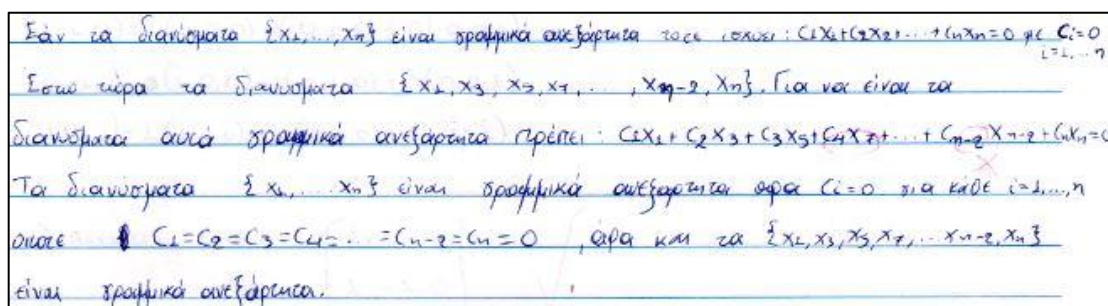 Εάν τα διανύσματα {x₁,...,xₙ} είναι γραμμικά ανεξάρτητα τότε ισχύει: C₁x₁+C₂x₂+...+Cₙxₙ=0 με Cᵢ=0
i=1,...n
Έστω τώρα τα διανύσματα {x₁,x₃,x₅,x₇,...,xₙ₋₂,xₙ}. Για να είναι τα
διανύσματα αυτά γραμμικά ανεξάρτητα πρέπει: C₁x₁+C₂x₃+C₃x₅+C₄x₇+...+Cₙ₋₂xₙ₋₂+Cₙxₙ=0
Τα διανύσματα {x₁,...xₙ} είναι γραμμικά ανεξάρτητα άρα Cᵢ=0 για κάθε i=1,...,n
οπότε C₁=C₂=C₃=C₄=...=Cₙ₋₂=Cₙ=0, άρα και τα {x₁,x₃,x₅,x₇,...xₙ₋₂,xₙ}
είναι γραμμικά ανεξάρτητα.